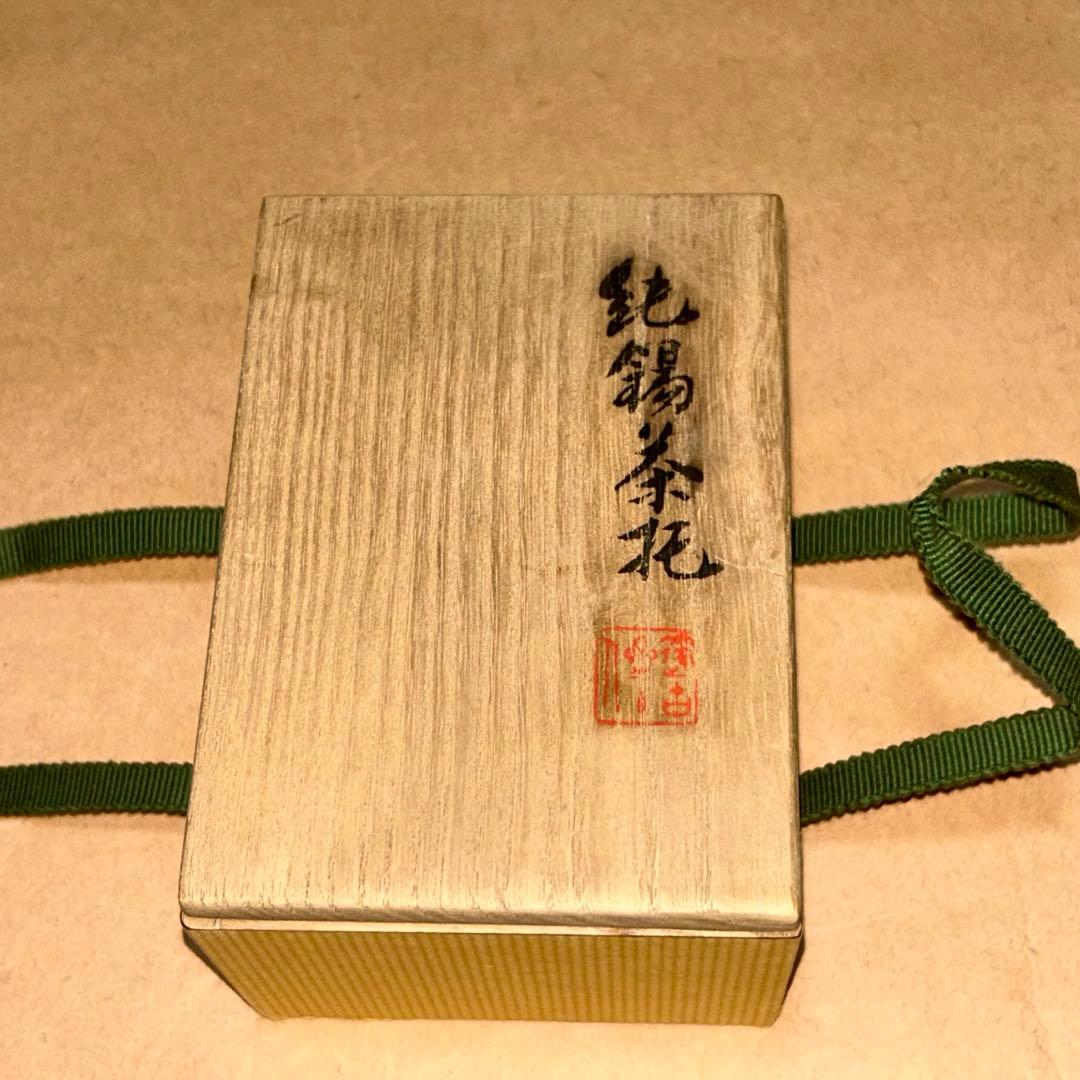 純錫茶托